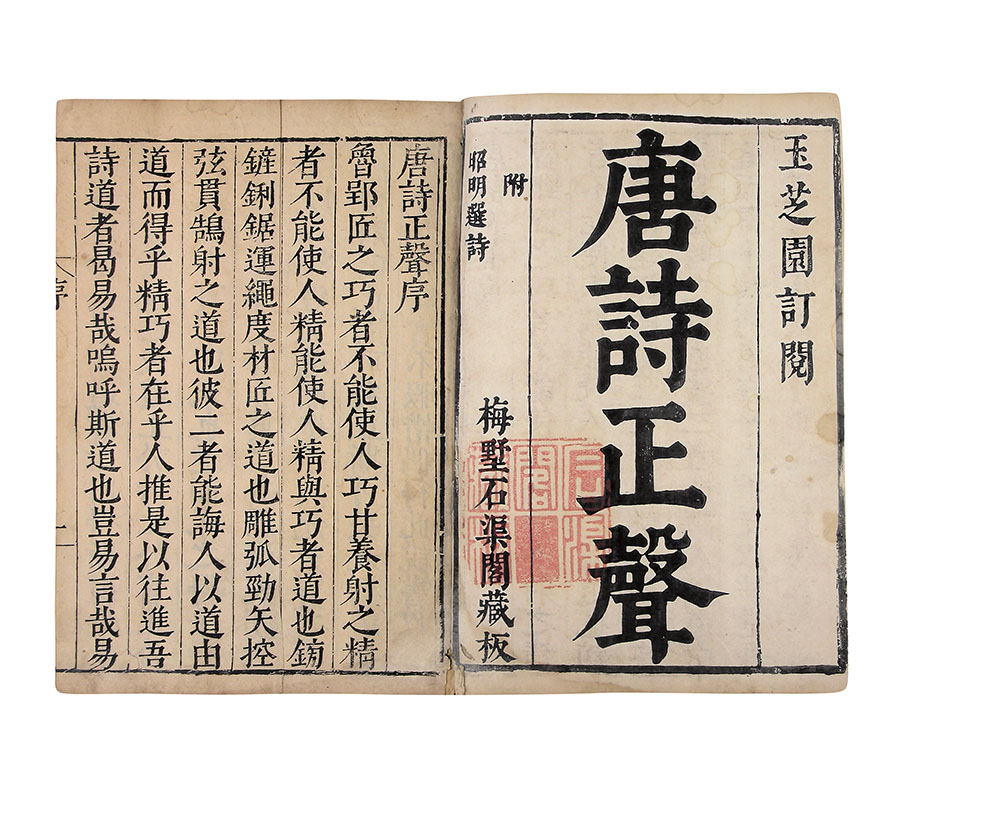 玉芝園訂閱
唐詩正聲
附
昭明選詩
梅墅石渠閣藏板
唐詩正聲序
魯郢匠之巧者不能使人巧甘養射之精
者不能使人精能使人精與巧者道也鈅
鏟鋓鋸運繩度材匠之道也雕弧勁矢控
弦貫鵠射之道也彼二者能誨人以道由
道而得乎精巧者在乎人推是以往進吾
詩道者曷易哉嗚呼斯道也豈易言哉易
序
一